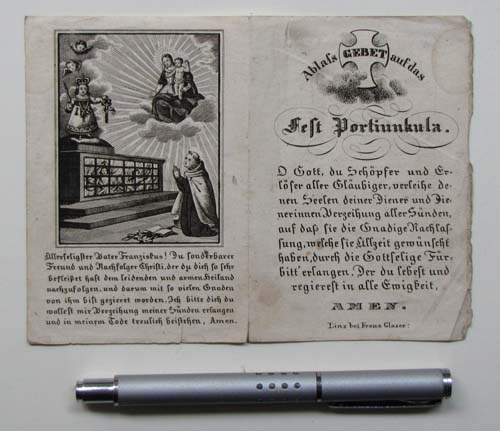 Allerseligster Vater Franziskus! Du sonderbarer
Freund und Nachfolger Christi, der du dich so sehr
befleißet hast dem leidenden und armen Heiland
nachzufolgen, und darum mit so vielen Gnaden
von ihm bist gezieret worden. Ich bitte dich du
wollest mir Verzeihung meiner Sünden erlangen
und in meinem Tode treulich beistehen, Amen.
Ablaſs GEBET auf das
Fest Portiunkula.
O Gott, du Schöpfer und Er-
löser aller Gläubiger, verleihe de-
nen Seelen deiner Diener und Die-
nerinnen Verzeihung aller Sünden,
auf daß sie die Gnädige Nachlas-
sung, welche sie Allzeit gewünscht
haben, durch die Gottselige Für-
bitt' erlangen. Der du lebest und
regierest in alle Ewigkeit,
AMEN.
Linz bei Franz Glaser: